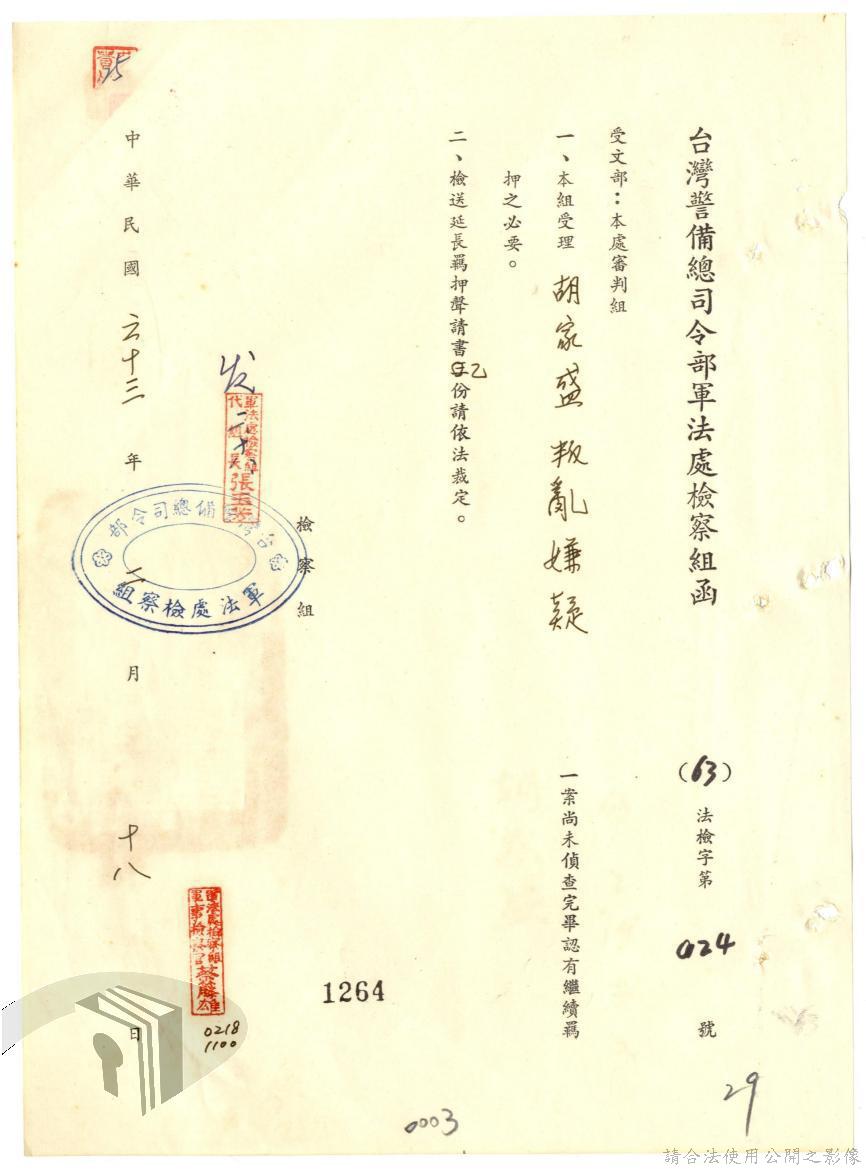 台灣警備總司令部軍法處檢察組函
(63)法檢字第024號
受文部:本處審判組
一、本組受理胡家盛叛亂嫌疑一案尚未偵查完畢認有繼續羈
押之必要。
二、檢送延長羈押聲請書乙份請依法裁定。
檢察組
軍法處檢察組
代組長張玉
發
台灣警備總司令部
軍法處檢察組
中華民國六十三年二月十八日
軍法處檢察組
軍事檢察官蔡藤雄
0218
1100
1264
0003
29
請合法使用公開之影像